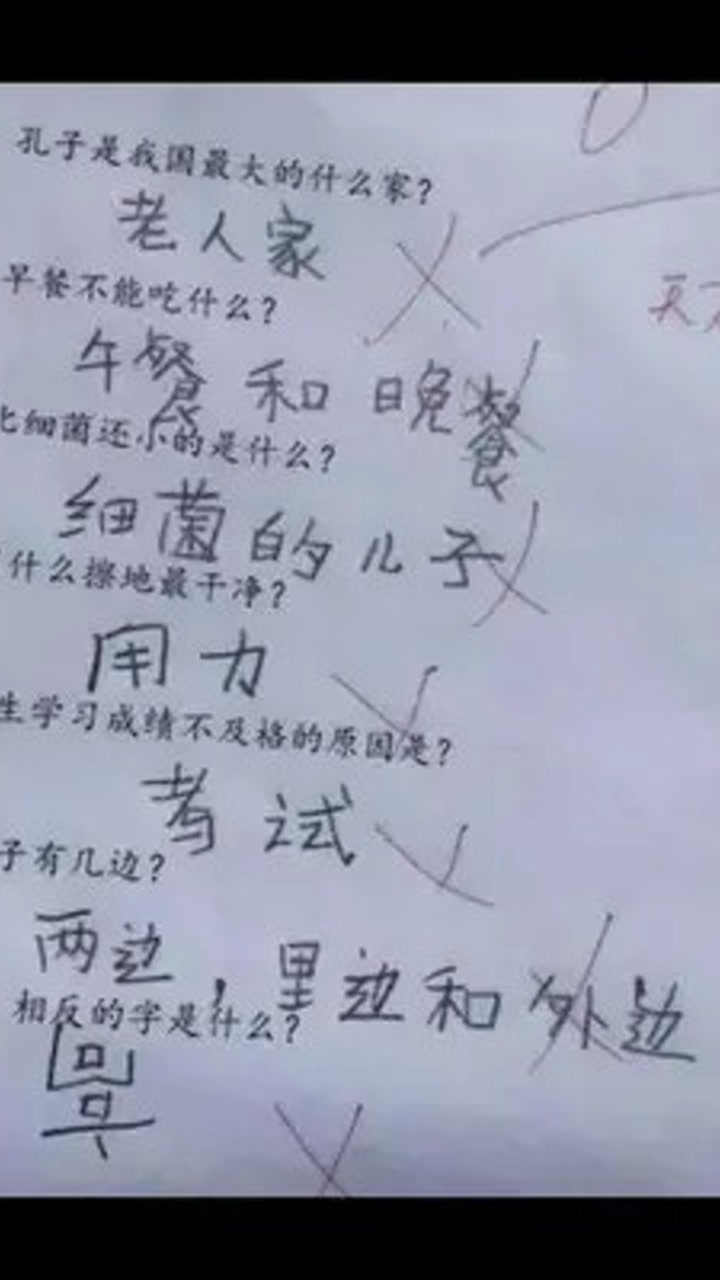 0
孔子是我国最大的什么家?
老人家
早餐不能吃什么?
午餐和晚餐
比细菌还小的是什么?
细菌的儿子
什么擦地最干净?
用力
生学习成绩不及格的原因是?
考试
子有几边?
两边,里边和外边
相反的字是什么?